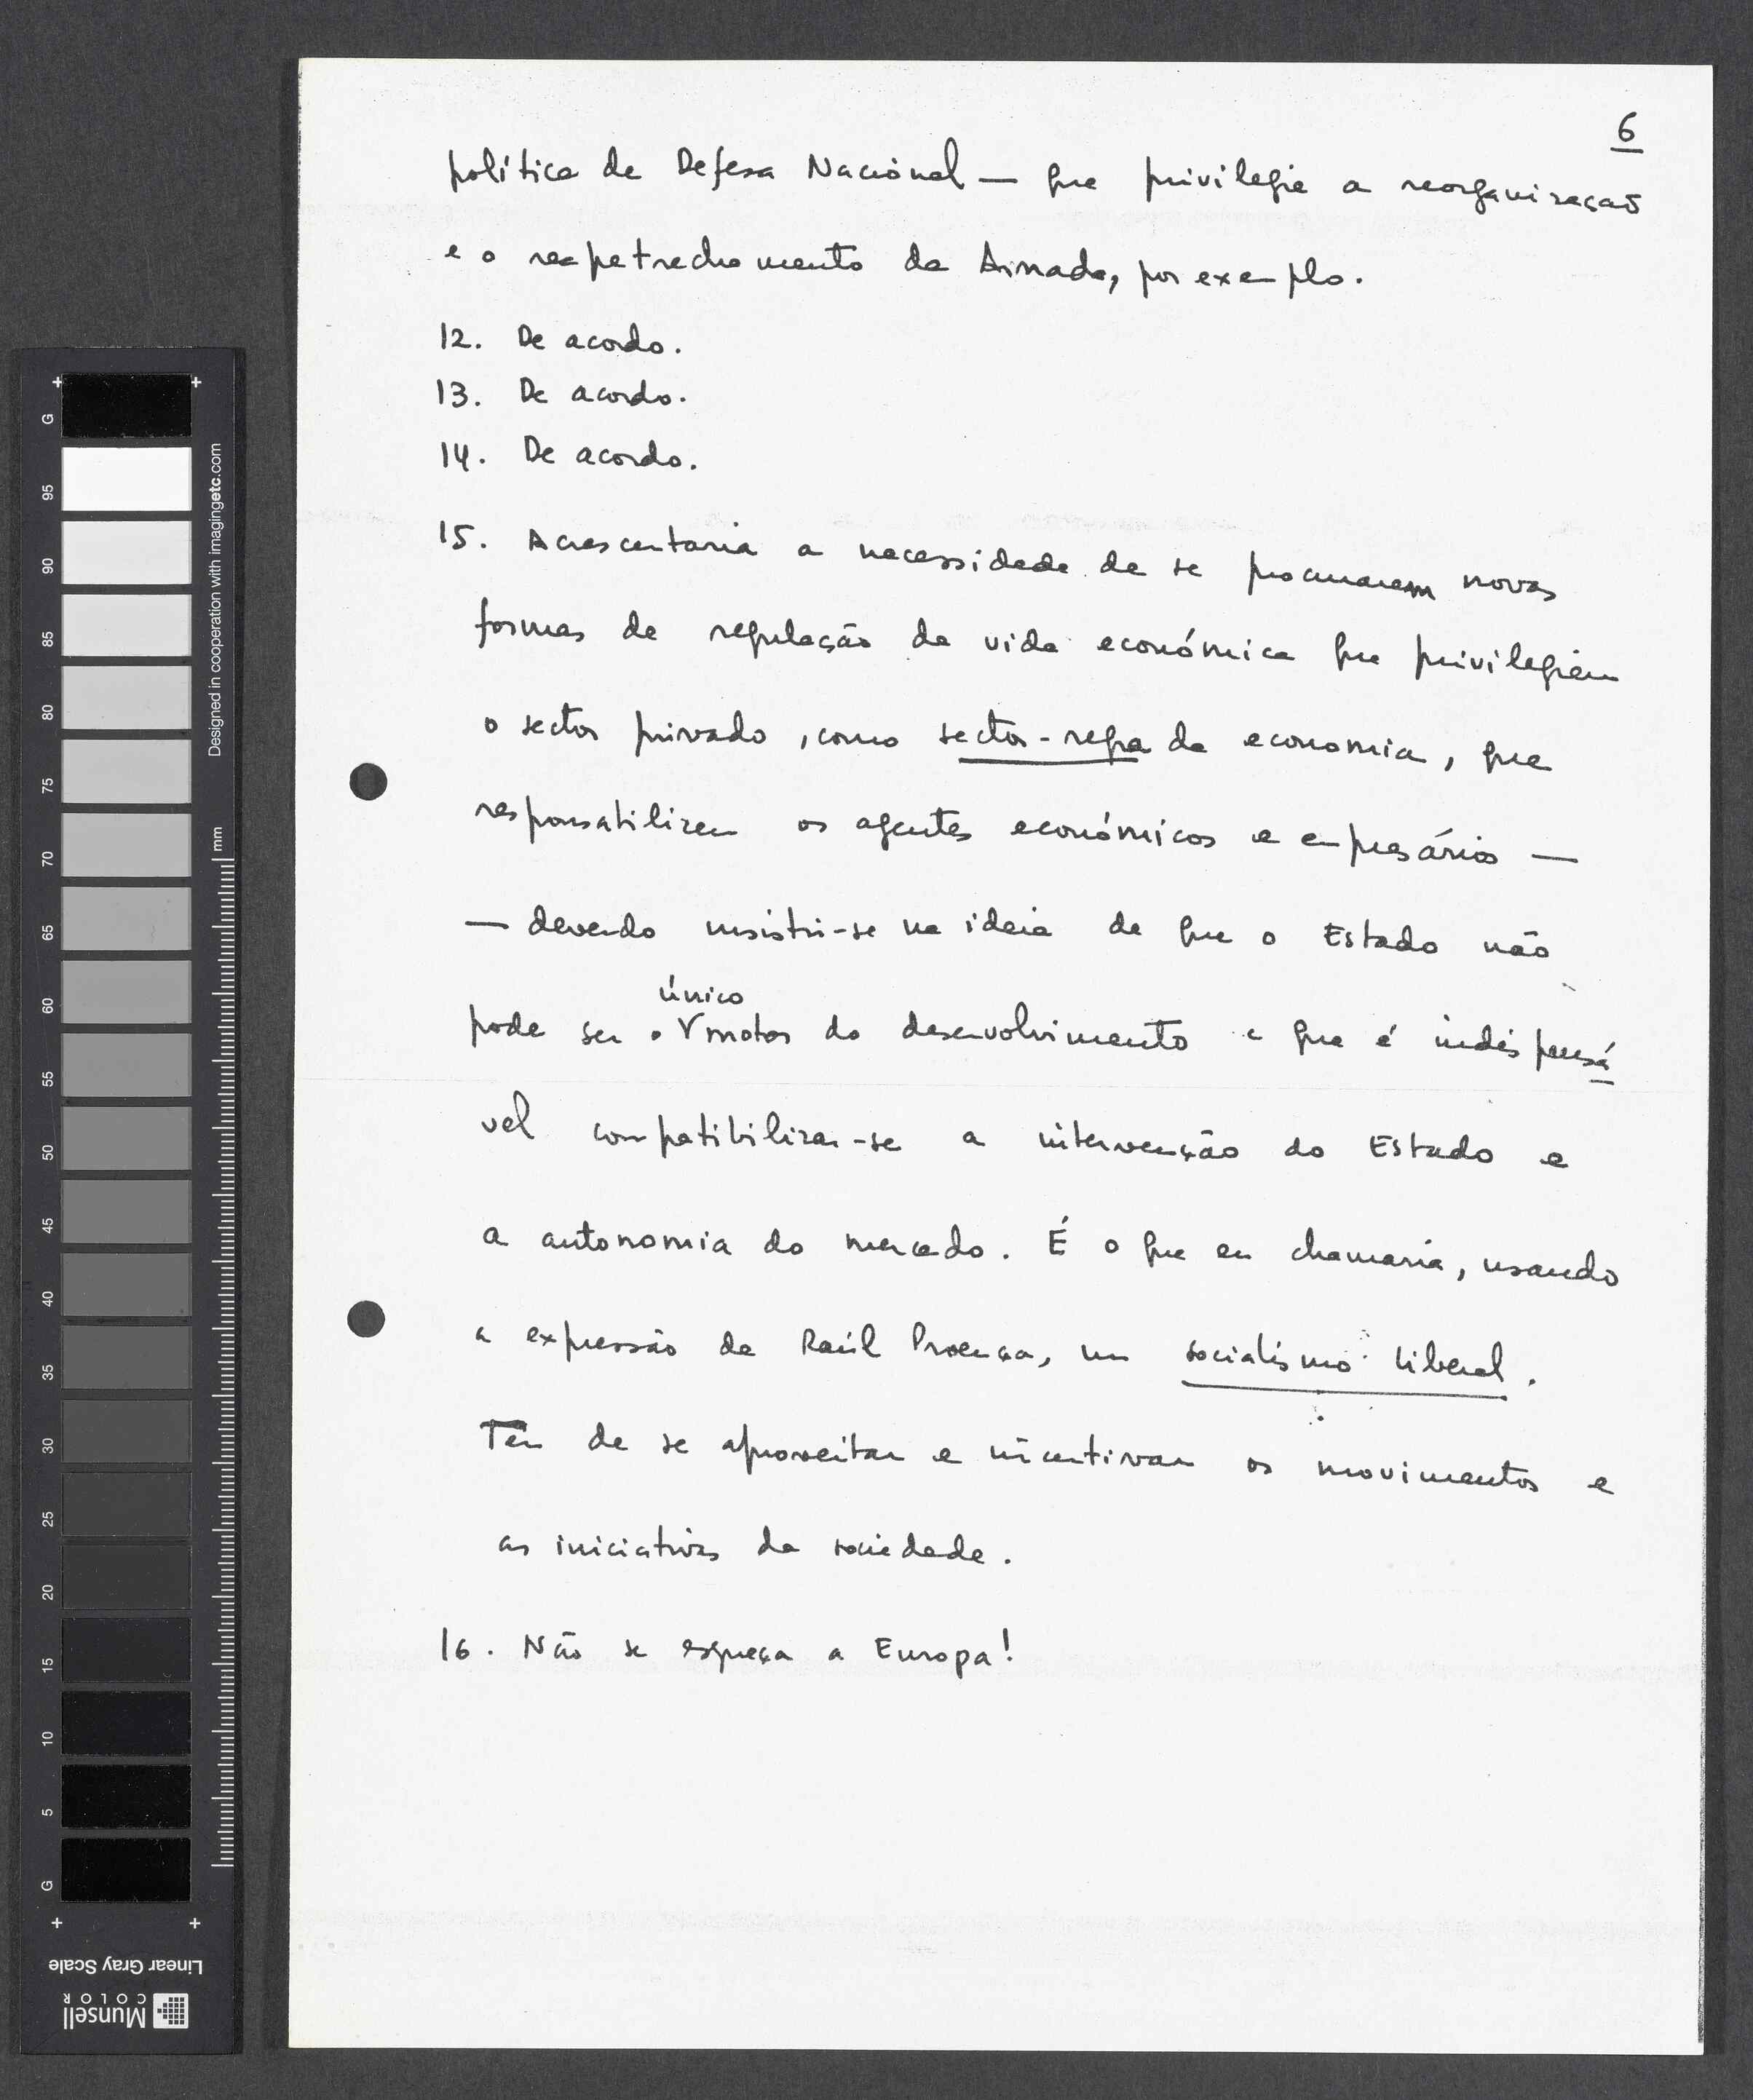 6
política de Defesa Nacional — que privilegie a reorganização
e o reapetrechamento da Armada, por exemplo.
12. De acordo.
13. De acordo.
14. De acordo.
15. Acrescentaria a necessidade de se procurarem novas
formas de regulação da vida económica que privilegiem
o sector privado, como sector-regra da economia, que
responsabilizem os agentes económicos e empresários —
— devendo insistir-se na ideia de que o Estado não
único
pode ser o V motor do desenvolvimento e que é indispensá
vel compatibilizar-se a intervenção do Estado e
a autonomia do mercado. É o que eu chamaria, usando
a expressão de Raúl Proença, um socialismo liberal.
Tem de se aproveitar e incentivar os movimentos e
as iniciativas da sociedade.
16. Não se esqueça a Europa!
G
95
90
85
80
75
70
65
60
55
50
45
40
35
30
25
20
15
10
5
G
mm
Designed in cooperation with imagingetc.com
Linear Gray Scale
Munsell
COLOR